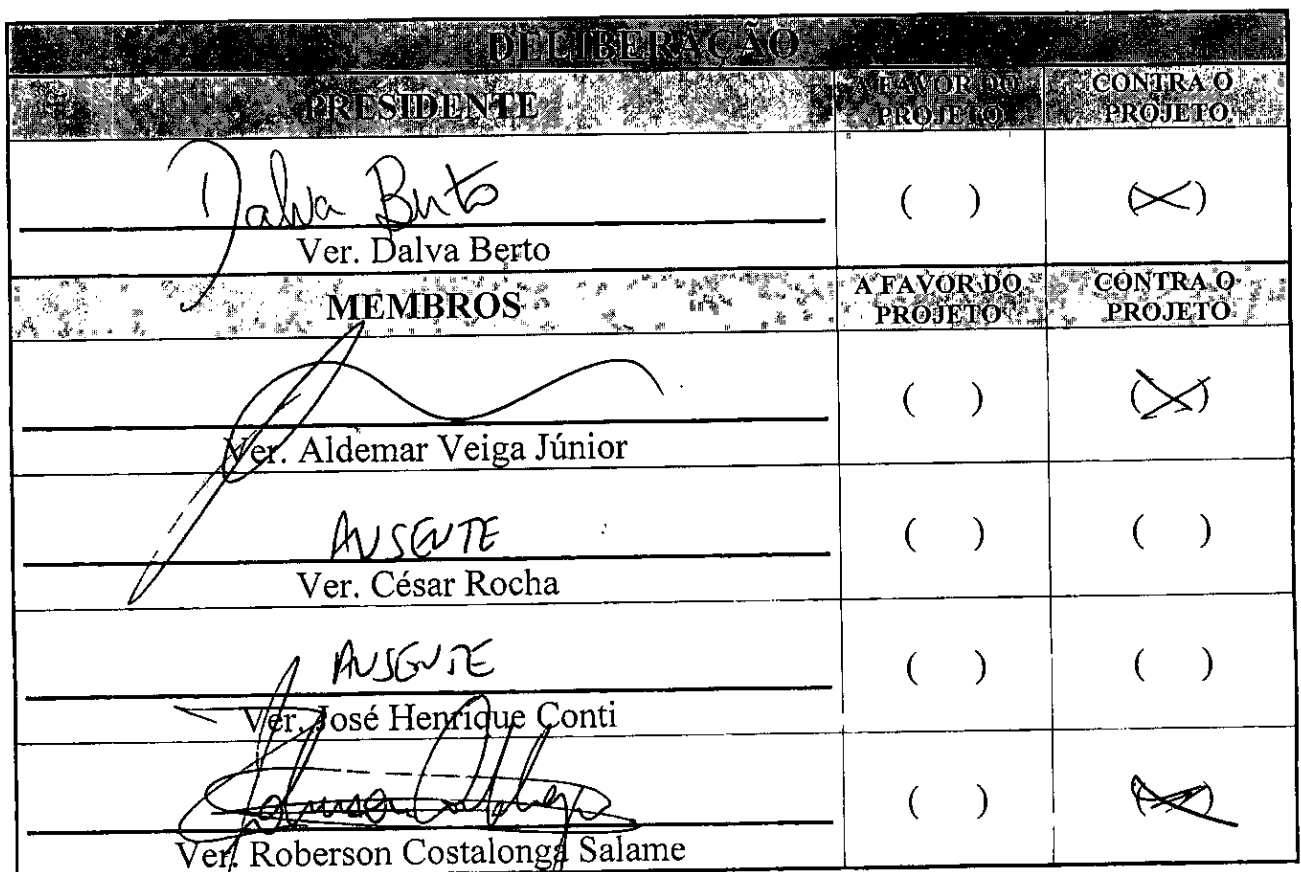 DELIBERAÇÃO
PRESIDENTE A FAVOR DO PROJETO CONTRA O PROJETO
Dalva Berto ( ) (X)
Ver. Dalva Berto
MEMBROS A FAVOR DO PROJETO CONTRA O PROJETO
( ) (X)
Ver. Aldemar Veiga Júnior
AUSENTE ( ) ( )
Ver. César Rocha
AUSENTE ( ) ( )
Ver. José Henrique Conti
( ) (X)
Ver. Roberson Costalonga Salame